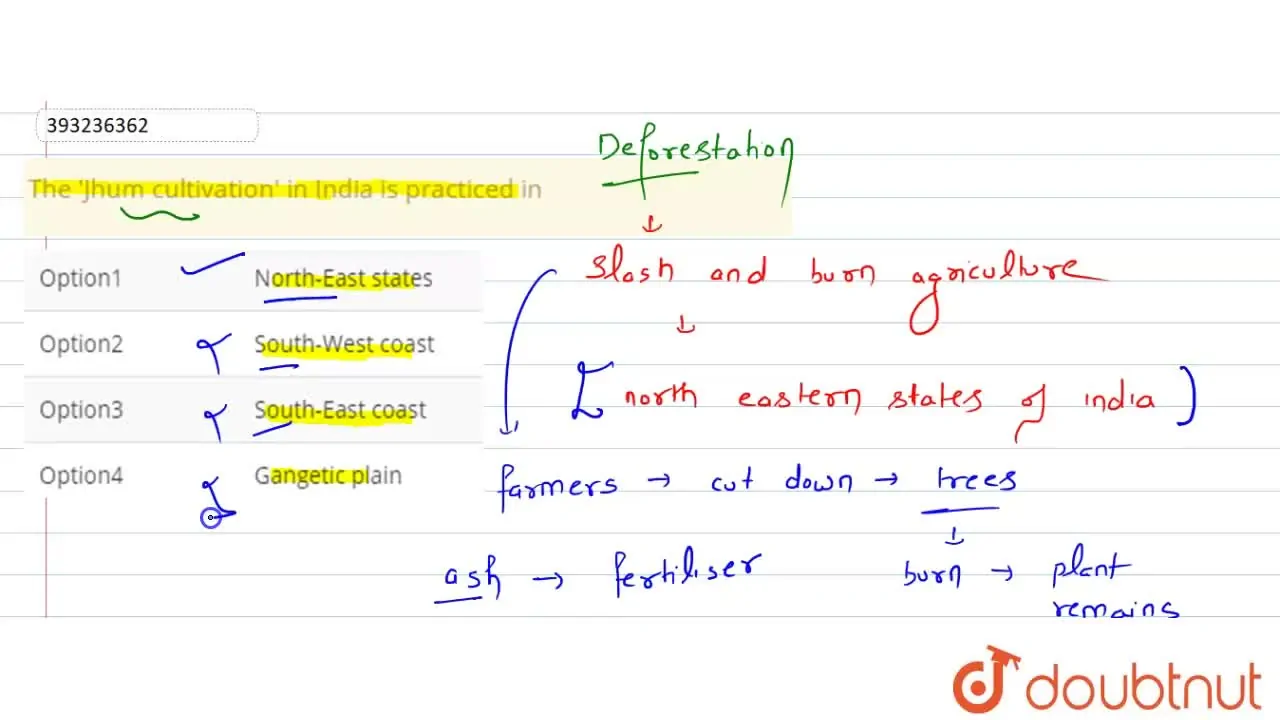 393236362
Deforestation
The 'Jhum cultivation' in India is practiced in
Slash and burn agriculture
Option1 North-East states
Option2 South-West coast
[north eastern states of india)
Option3 South-East coast
Option4 Gangetic plain
farmers → cut down → trees
ash → fertiliser
burn → plant
remains
doubtnut